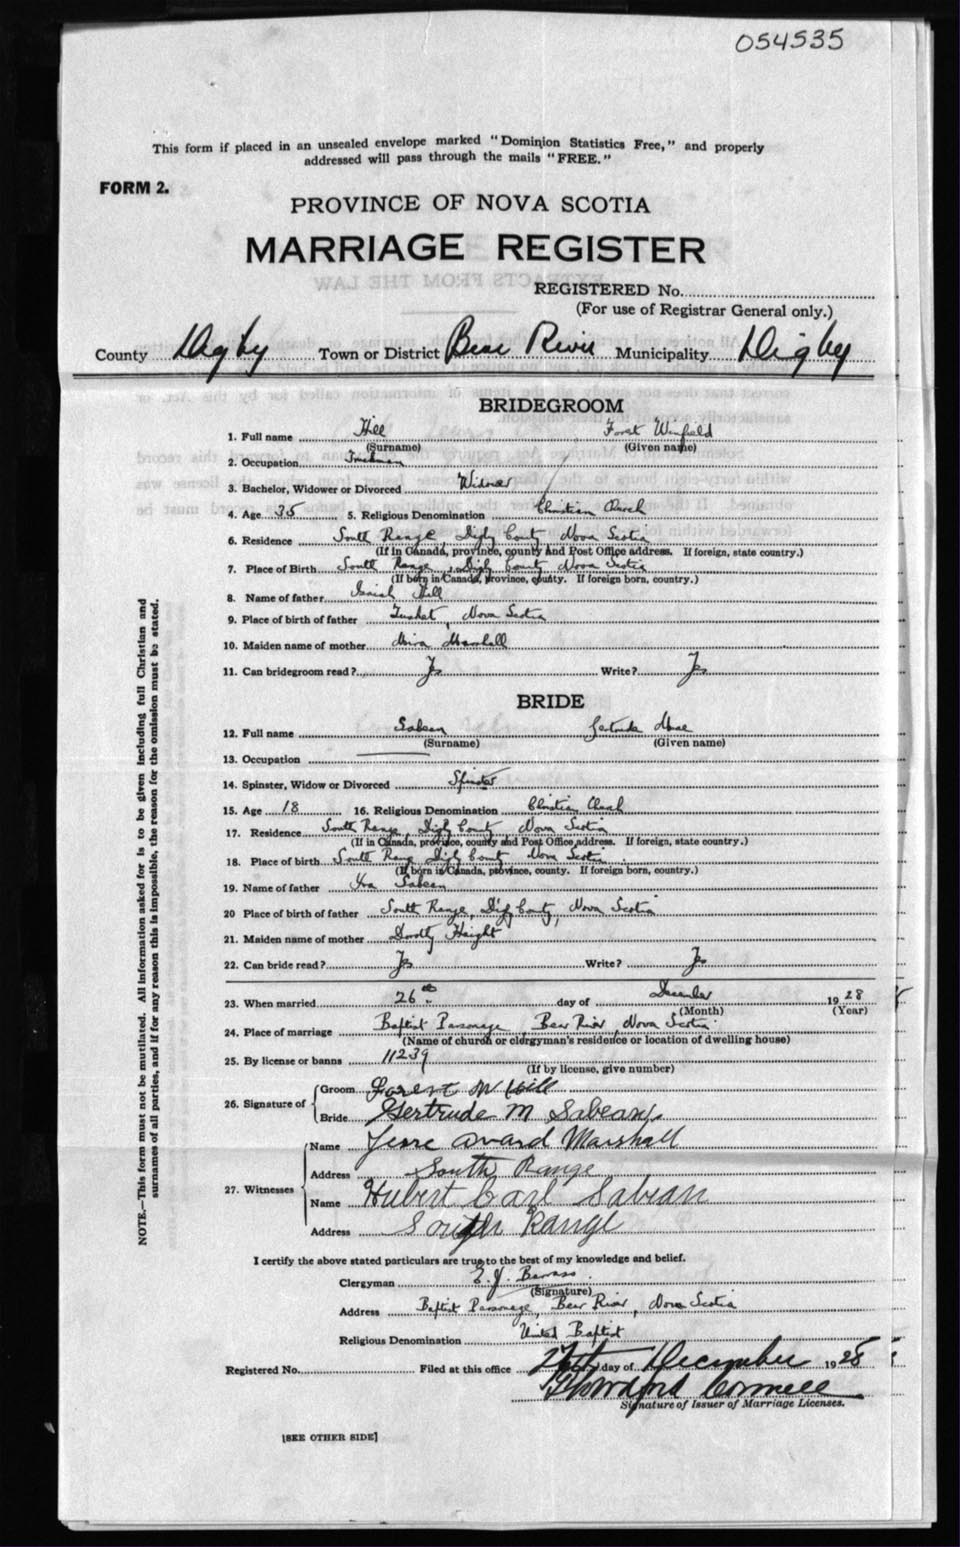 054535
This form if placed in an unsealed envelope marked "Dominion Statistics Free," and properly
addressed will pass through the mails "FREE."
FORM 2.
PROVINCE OF NOVA SCOTIA
MARRIAGE REGISTER
REGISTERED No.
(For use of Registrar General only.)
County Digby Town or District Bear River Municipality Digby
BRIDEGROOM
1. Full name Hill Forest Winfield
(Surname) (Given name)
2. Occupation Truckman
3. Bachelor, Widower or Divorced Widower
4. Age 35 5. Religious Denomination Christian Church
6. Residence South Range, Digby County Nova Scotia
(If in Canada, province, county and Post Office address. If foreign, state country.)
7. Place of Birth South Range, Digby County Nova Scotia
(If born in Canada, province, county. If foreign born, country.)
8. Name of father Isaiah Hill
9. Place of birth of father Tusket, Nova Scotia
10. Maiden name of mother Marshall
11. Can bridegroom read? Yes Write? Yes
BRIDE
12. Full name Sabean Gertrude Mae
(Surname) (Given name)
13. Occupation
14. Spinster, Widow or Divorced Spinster
15. Age 18 16. Religious Denomination Christian Church
17. Residence South Range, Digby County, Nova Scotia
(If in Canada, province, county and Post Office address. If foreign, state country.)
18. Place of birth South Range Digby County Nova Scotia
(If born in Canada, province, county. If foreign born, country.)
19. Name of father Ira Sabean
20 Place of birth of father South Range, Digby County, Nova Scotia
21. Maiden name of mother Dorothy Haight
22. Can bride read? Yes Write? Yes
23. When married 26th day of December 1928
(Month) (Year)
24. Place of marriage Baptist Parsonage, Bear River, Nova Scotia
(Name of church or clergyman's residence or location of dwelling house)
25. By license or banns 11239
(If by license, give number)
26. Signature of
Groom Forest W Hill
Bride Gertrude M Sabean
27. Witnesses
Name Jesse Avard Marshall
Address South Range
Name Hubert Carl Sabean
Address South Range
I certify the above stated particulars are true to the best of my knowledge and belief.
Clergyman E. J. Barrass
(Signature)
Address Baptist Parsonage, Bear River, Nova Scotia
Religious Denomination United Baptist
Registered No. Filed at this office 27th day of December 1928
Cornell
Signature of Issuer of Marriage Licenses.
[SEE OTHER SIDE]
NOTE.—This form must not be mutilated. All information asked for is to be given including full Christian and
surnames of all parties, and if for any reason this is impossible, the reason for the omission must be stated.